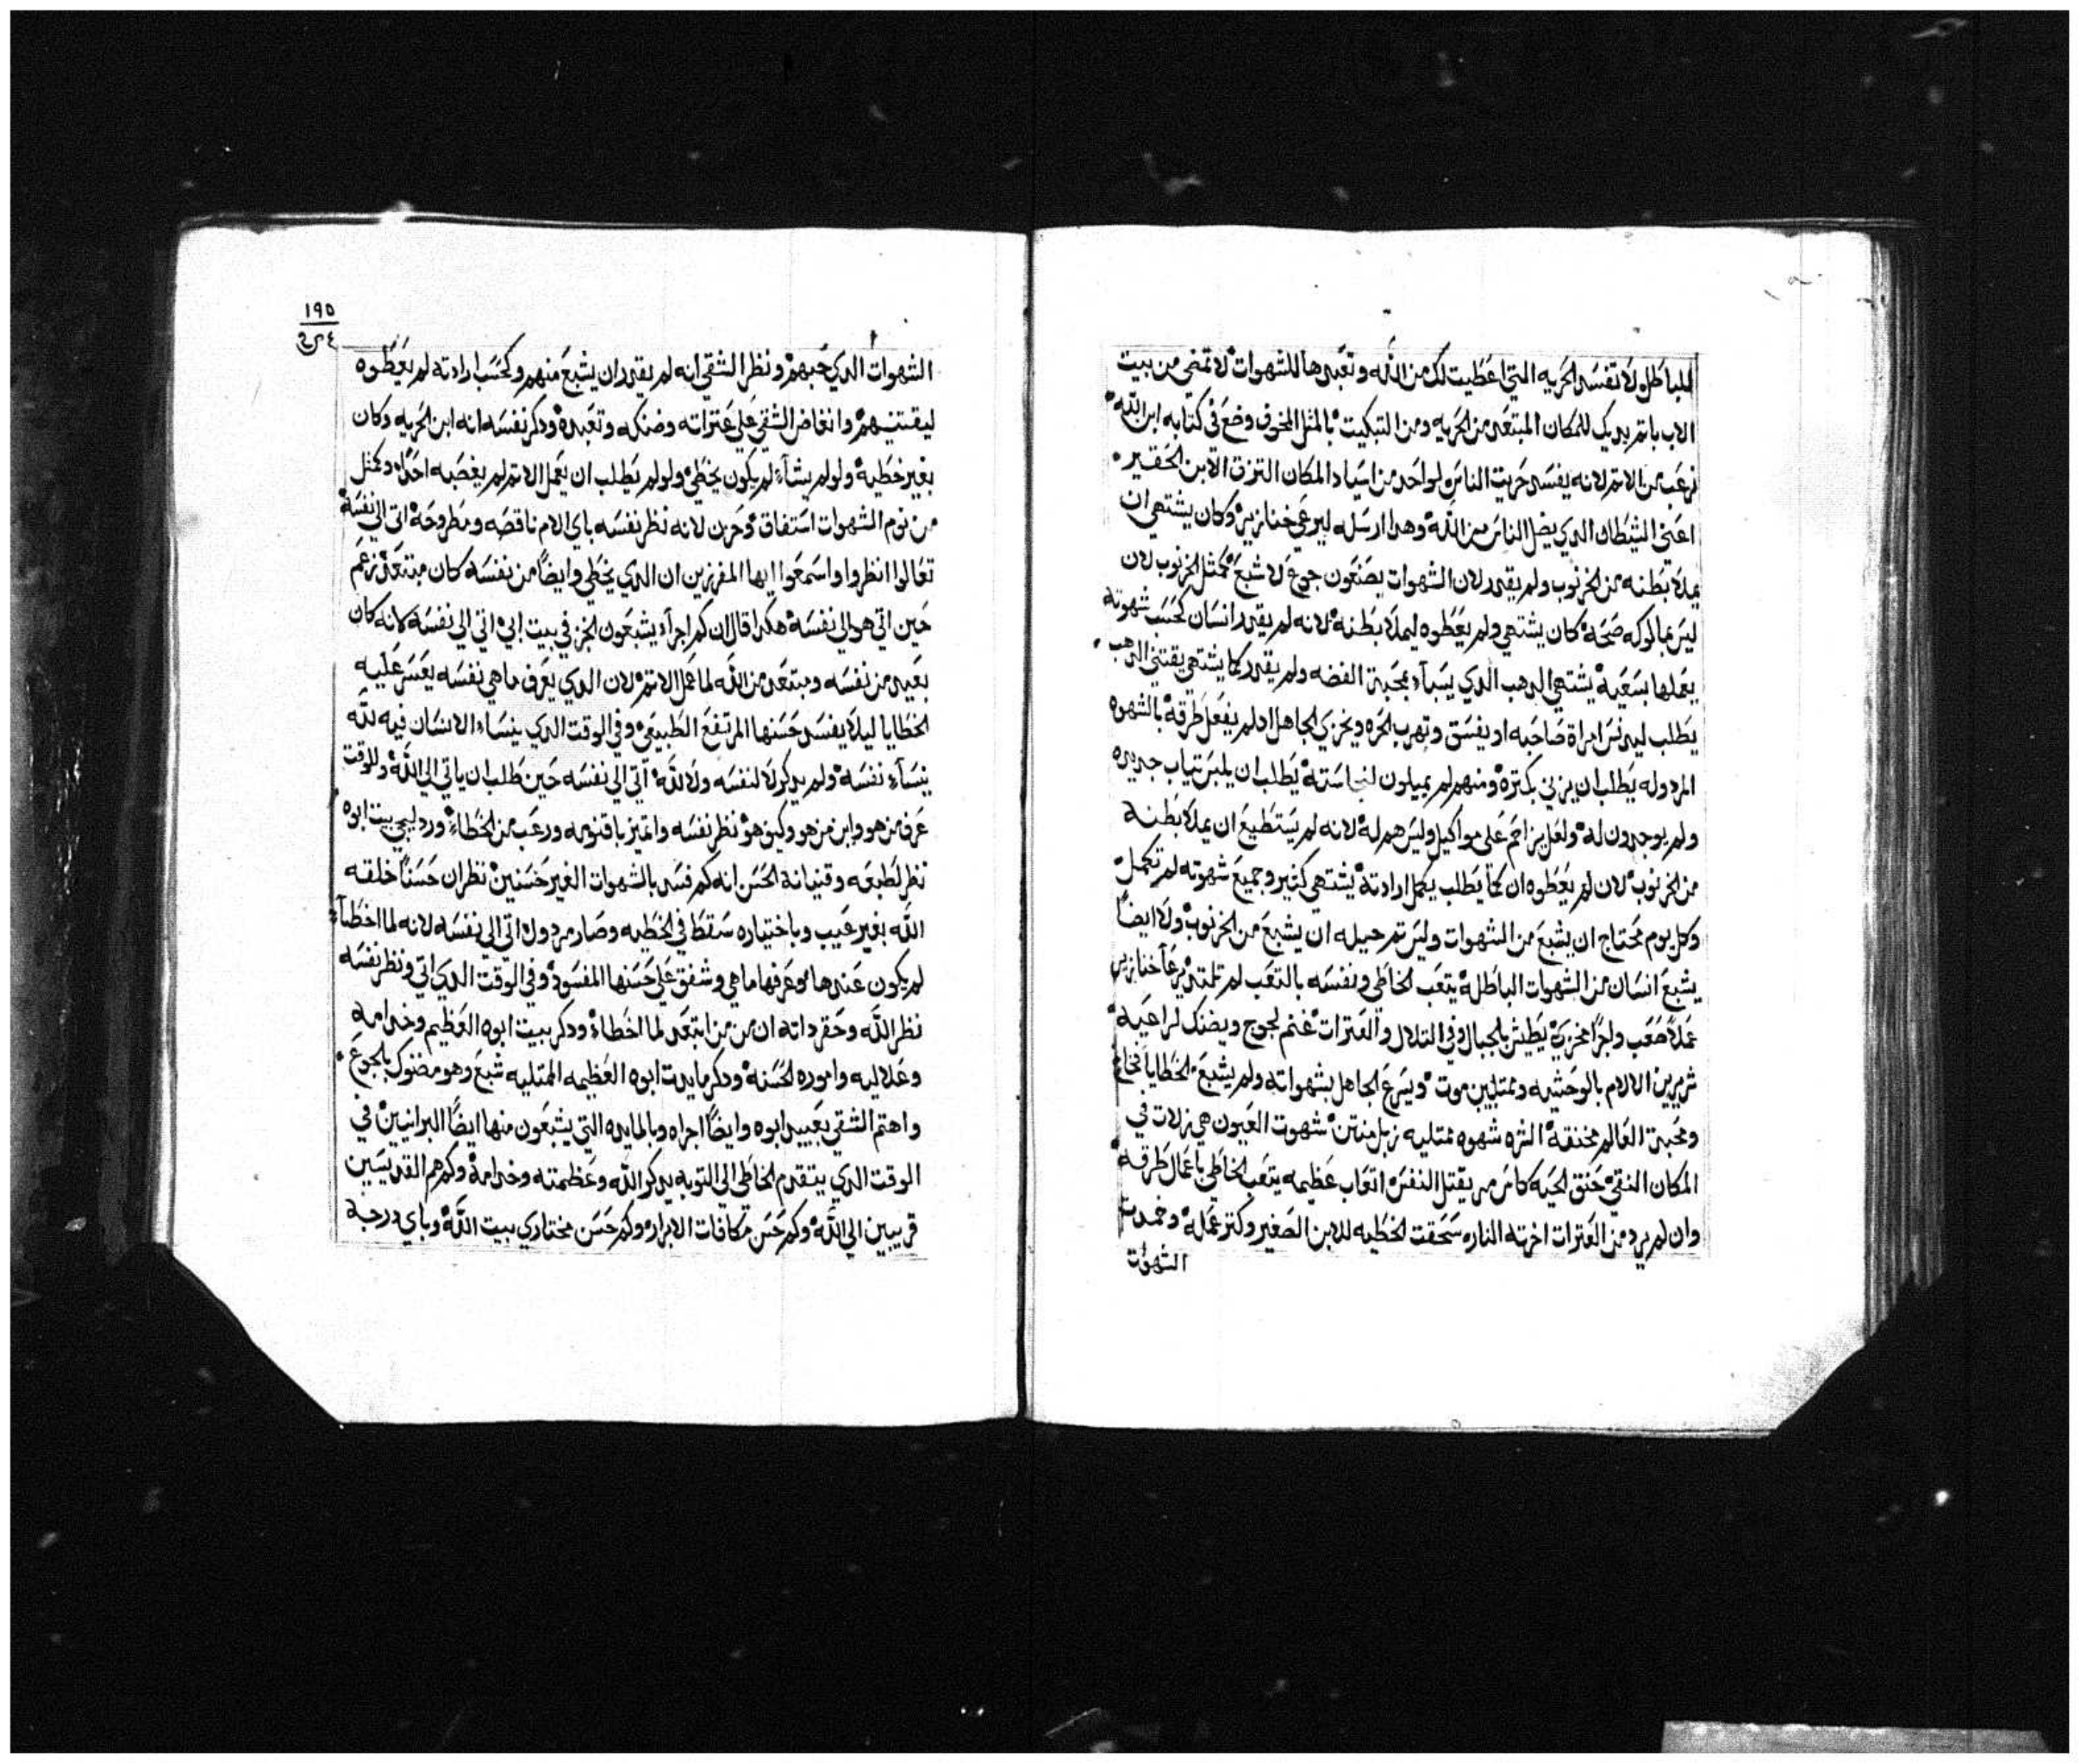 للباطل ولا تفسد الحريه التي اعطيت لك من الله وتعبدها للشهوات لا تمضي من بيت
الاب باتم يديك للمكان المبتعد من الحريه ومن التبكيت بالمثل المخوف وضع في كتابه ابن الله
نرعب من الاتم لانه يفسد حريت الناس لواحد من اسياد المكان التزق الابن الحقير
اعني الشيطان الدي يضل الناس من الله وهدا ارسله ليرعي خنازيره وكان يشتهي ان
يملا بطنه من الخرنوب ولم يقدر لان الشهوات يصنعون جوع لا شبع كمثل الخرنوب لان
ليس بمالوكه صحه كان يشتهي ولم يعطوه ليملا بطنه لانه لم يقدر انسان كحسب شهوته
يعملها بسعيه يشتهي الدهب الدي يسباء بمحبة الفضه ولم يقدر كما يشتهي يقتني الدهب
يطلب ليدنس امراة صاحبه او يفسق وتهرب الحره ويخزي الجاهل اد لم يفعل طرقه بالشهوه
المردوله يطلب ان يزني بكتره ومنهم لم يميلون لنجاسته يطلب ان يلبس تياب جديده
ولم يوجدون له ولعل يزاحم علي مواكيل وليس هم له لانه لم يستطيع ان يملا بطنه
من الخرنوب لان لم يعطوه ان كما يطلب يكمل ارادته يشتهي كتير وجميع شهوته لم تكمل
وكل يوم محتاج ان يشبع من الشهوات وليس تم حيله ان يشبع من الخرنوب ولا ايضا
يشبع انسان من الشهوات الباطله يتعب الخاطي ونفسه بالتعب لم تمتلي يرعا خنازير
عملا صعب واجرا مخزيه يطيش بالجبال وفي التلال والعترات غنم لجوج ويضنك لراعيه
شريرين الالام بالوحشيه وممتليين موت ويسرع الجاهل بشهواته ولم يشبع الخطايا فخاخ
ومحبة العالم مخنقه الشره شهوه ممتليه زبل منتن شهوت العيون هي زلات في
المكان النقي خنق الحيه كاس مر يقتل النفس اتعاب عظيمه يتعب الخاطي باعمال طرقه
وان لم يرد من العترات اخرته الناره سحقت الخطيه للابن الصغير وكتر عمله وخمدت
الشهوات
١٩٥
الشهوات الدي حبهم ونظر الشقي انه لم يقدر ان يشبع منهم وكحسب ارادته لم يعطوه
ليقتنيهم وانغاض الشقي علي عتراته وضنكه وتعبده ودكر نفسه انه ابن الحريه وكان
بغير خطيه ولو لم يشاء لم يكون يخطي ولو لم يطلب ان يعمل الاتم لم يغصبه احدا وكمثل
من نوم الشهوات استفاق وحزن لانه نظر نفسه باي الام ناقصه ومطروحه اتي الي نفسه
تعالوا انظروا واسمعوا ايها المفرزين ان الدي يخطي وايضا من نفسه كان مبتعد زعم
حين اتي هو الي نفسه هكدا قال ان كم اجراء يشبعون الخبز في بيت ابي اتي الي نفسه لانه كان
بعيد من نفسه ومبتعد من الله لما عمل الاتم لان الدي يعرف ما هي نفسه يعسر عليه
الخطايا ليلا يفسد حسنها المرتفع الطبيعي وفي الوقت الدي ينساء الانسان فيه لله
ينساء نفسه ولم يدكر لا لنفسه ولا لله اتي الي نفسه حين طلب ان ياتي الي الله وللوقت
عرف من هو وابن من هو وكيف هو نظر نفسه واتميز باقنومه ورعب من الخطاء ورد ليجي بيت ابوه
نظر لطبعه وقنيانة الحسن انه كم فسد بالشهوات الغير حسنين نظر ان حسنا خلقه
الله بغير عيب وباختياره سقط في الخطيه وصار مردول اتي الي نفسه لانه لما اخطاء
لم يكون عندها وعرفها ما هي وشفق علي حسنها المفسود وفي الوقت الدي اتي ونظر نفسه
نظر الله وحقر داته ان من من ابتعد لما اخطاء ودكر بيت ابوه العظيم وخدامه
وعلاليه واموره الحسنه ودكر مايدت ابوه العظيمه الممتليه شبع وهو مضنوك بالجوع
واهتم الشقي بعبيد ابوه وايضا اجراه وبالمايده التي يشبعون منها ايضا البرانيين في
الوقت الدي يتقدم الخاطي الي التوبه يدكر الله وعظمته وخدامه وكم هم القديسين
قريبين الي الله وكم حسن مكافات الابرار وكم حسن مختاري بيت الله وباي درجة